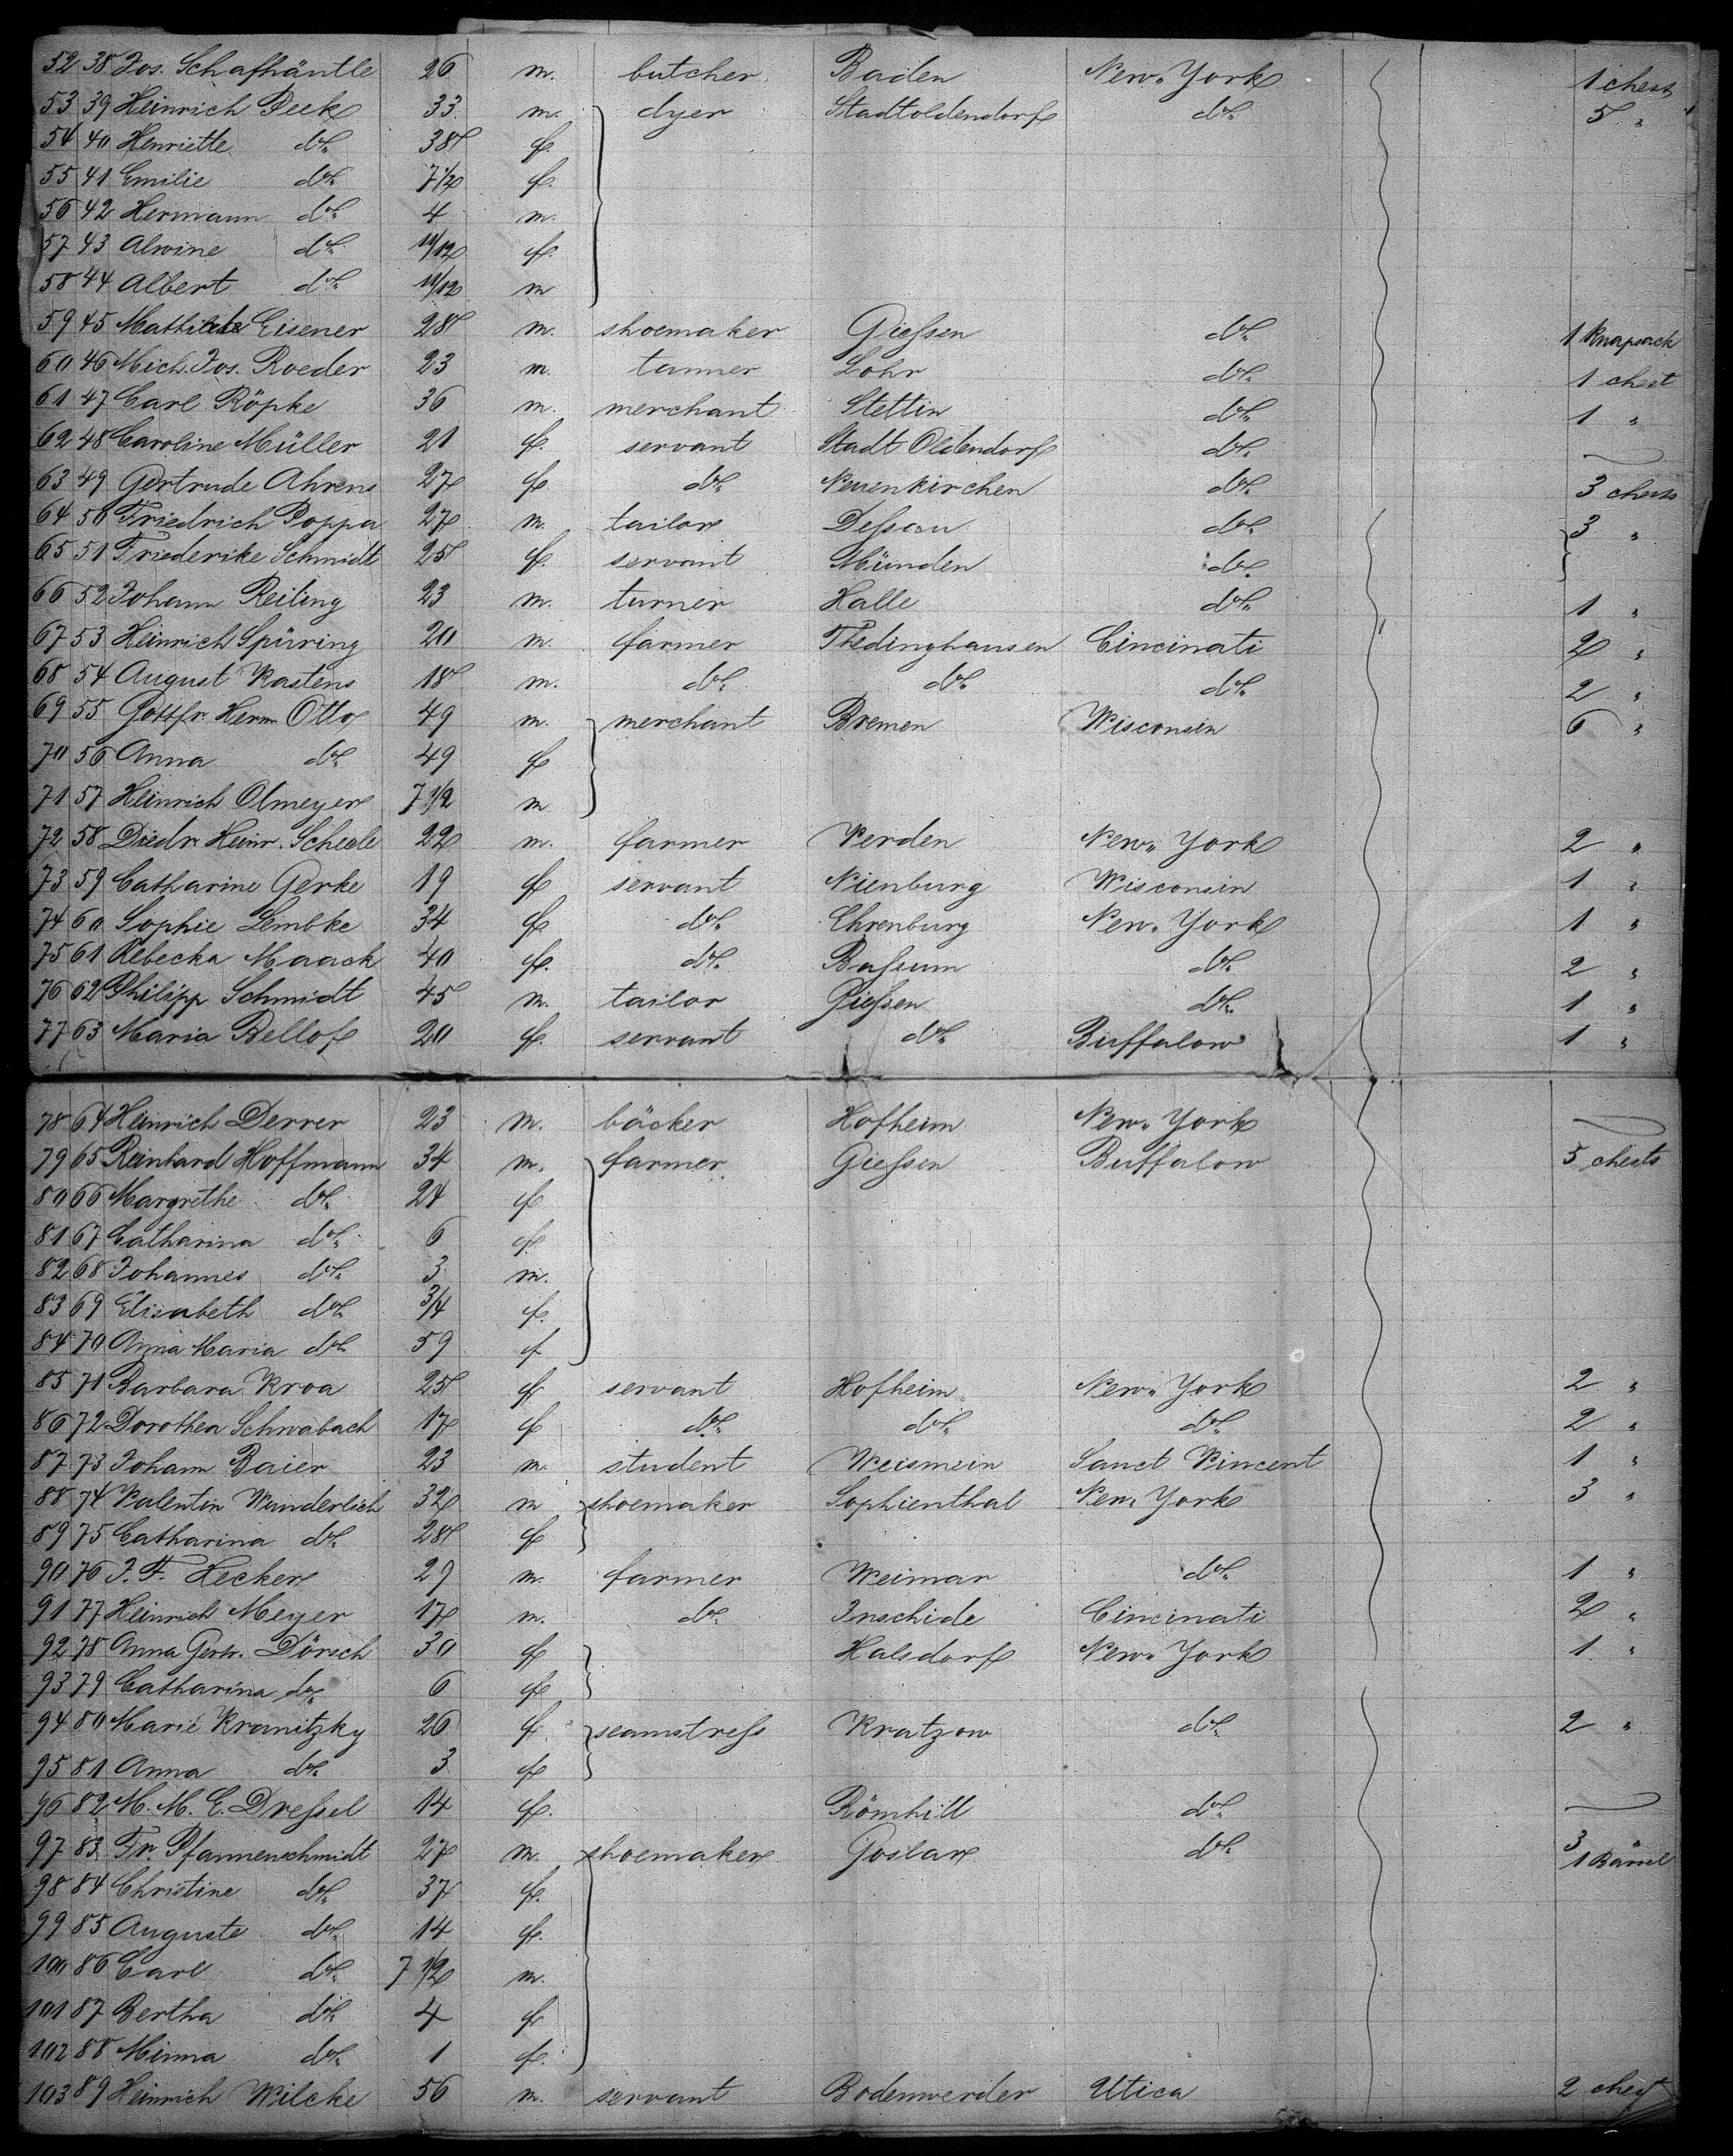 52 38 Jos. Schafhäutle 26 m. butcher Baden New York 1 chest
53 39 Heinrich Peek 33 m. dyer Stadtoldendorf do. 5 "
54 40 Henriette do. 38 f.
55 41 Emilie do. 7 1/2 f.
56 42 Hermann do. 4 m.
57 43 Alwine do. 11/12 f.
58 44 Albert do. 11/12 m
59 45 Eisener 28 m. shoemaker Gießen do. 1 Knapsack
60 46 Mich. Jos. Roeder 23 m. tanner Lohr do. 1 chest
61 47 Carl Röpke 36 m. merchant Stettin do. 1 "
62 48 Caroline Müller 21 f. servant Stadt Oldendorf do.
63 49 Gertrude Ahrens 27 f. do. Neuenkirchen do. 3 chests
64 50 Friedrich Poppa 27 m. tailor Deßau do. 3 "
65 51 Friederike Schmidt 25 f. servant Münden do.
66 52 Johann Reiling 23 m. turner Halle do. 1 "
67 53 Heinrich Spüring 20 m. farmer Thedinghausen Cincinati 2 "
68 54 August Kastens 18 m. do. do. do. 2 "
69 55 Gottfr. Herm. Otto 49 m. merchant Bremen Wisconsin 6 "
70 56 Anna do. 49 f
71 57 Heinrich Olmeyer 7 1/2 m
72 58 Diedr. Heinr. Scheele 22 m. farmer Verden New York 2 "
73 59 Catharine Gerke 19 f servant Nienburg Wisconsin 1 "
74 60 Sophie Lembke 34 f do. Ehrenburg New York 1 "
75 61 Rebecka Maack 40 f. do. Baßum do. 2 "
76 62 Philipp Schmidt 45 m. tailor Gießen do. 1 "
77 63 Maria Bellof 20 f. servant do. Buffalow 1 "
78 64 Heinrich Derrer 23 m. bäcker Hofheim New York
79 65 Reinhard Hoffmann 34 m. farmer Gießen Buffalow 5 chests
80 66 Margrethe do. 24 f
81 67 Catharina do. 6 f.
82 68 Johannes do. 3 m.
83 69 Elisabeth do. 3/4 f.
84 70 Anna Maria do. 59 f
85 71 Barbara Kroa 25 f servant Hofheim New York 2 "
86 72 Dorothea Schwabach 17 f do. do. do. 2 "
87 73 Johann Baier 23 m. student Weismein Sanct Vincent 1 "
88 74 Valentin Wunderlich 32 m shoemaker Sophienthal New York 3 "
89 75 Catharina do. 28 f
90 76 J. F. Hecker 29 m. farmer Weimar do. 1 "
91 77 Heinrich Meyer 17 m. do. Inschide Cincinati 2 "
92 78 Anna Gertr. Dörsch 30 f Halsdorf New York 1 "
93 79 Catharina do. 6 f
94 80 Marie Kranitzky 26 f. seamstreß Kratzow do. 2 "
95 81 Anna do. 3 f
96 82 M. M. E. Dreßel 14 f. Römhilt do.
97 83 Fr. Pfannenschmidt 27 m. shoemaker Goslar do. 3 1 Bärrel
98 84 Christine do. 37 f.
99 85 Auguste do. 14 f.
100 86 Carl do. 7 1/2 m.
101 87 Bertha do. 4 f
102 88 Minna do. 1 f.
103 89 Heinrich Wilcke 56 m. servant Bodenwerder Utica 2 chest